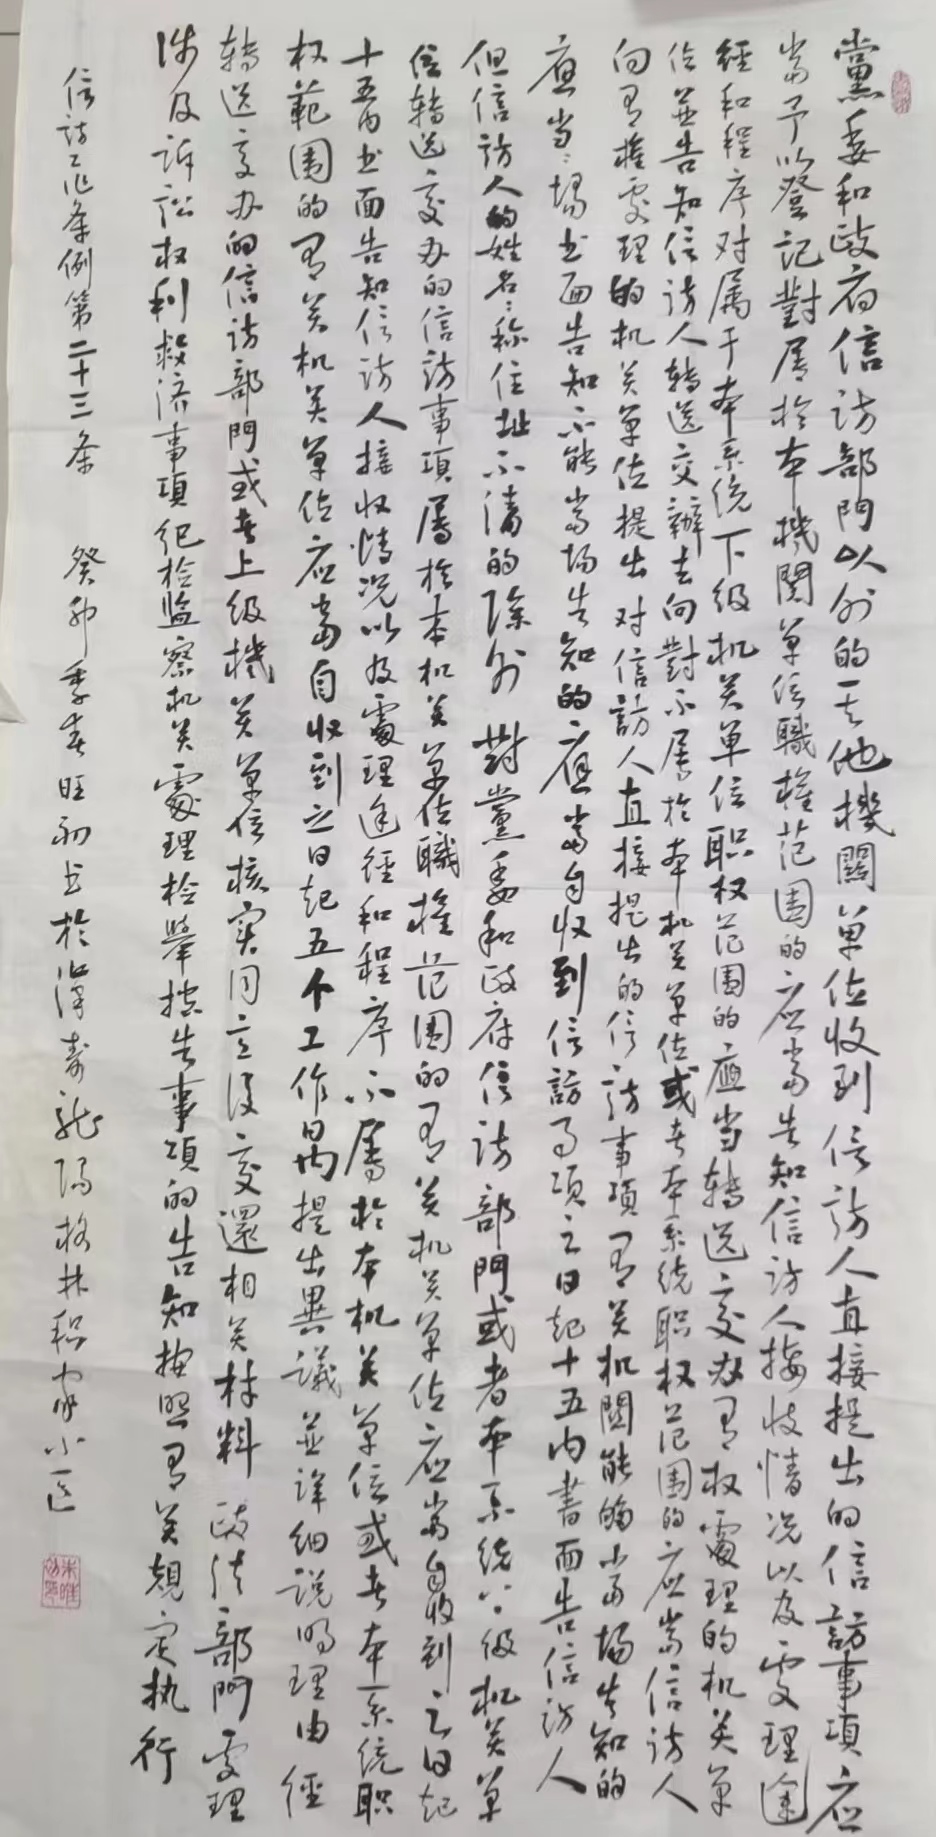 黨委和政府信访部門以外的其他機關单位收到信访人直接提出的信訪事项应
当予以登记對属於本機関单位職權范围的应当告知信访人接收情况以及处理途
经和程序对属于本系统下级机关单位职权范围的應当转送交办有权處理的机关单
位並告知信访人转送交辦去向對不属於本机关单位或者本系统职权范围的应当信访人
向有權处理的机关单位提出 对信訪人直接提出的信访事项有关机関能夠当場告知的
應当當場书面告知不能当场告知的應当自收到信訪事项之日起十五内書面告信访人
但信访人的姓名名称住址不清的除外 對黨委和政府信访部門或者本系统上级机关单
位转送交办的信访事項属於本机关单位職權范围的有关机关单位应当自收到之日起
十五日内书面告知信访人接收情况以及處理途径和程序 不属於本机关单位或者本系统职
权範围的有关机关单位应当自收到之日起五个工作日内提出異議並详细说明理由 径
转送交办的信访部門或者上级機关单位核实同意後交還相关材料 政法部門處理
涉及诉讼权利救济事項纪检监察机关處理检举控告事項的告知按照有关規定执行
信访工作条例第二十三条 癸卯季春旺初书於漢寿龙陽格林积家小区